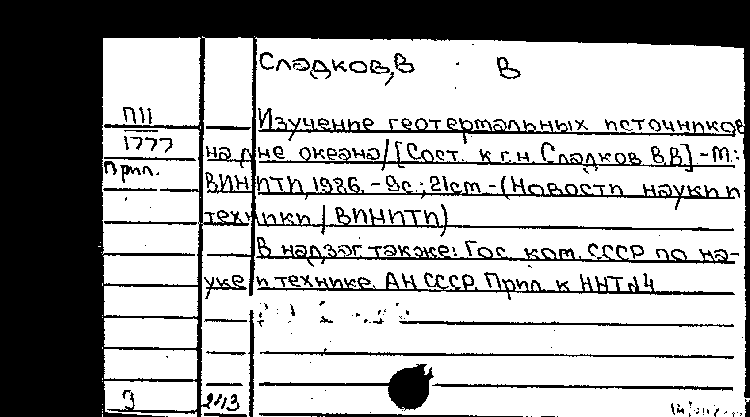 Сладков, В В
П11
1777
Прил.
Изучение геотермальных источников
на дне океана/[Сост. к.г.н. Сладков В.В] - М.:
ВИНИТИ, 1986. - 9с.; 21см - (Новости науки и
техники / ВИНИТИ)
В надзаг. также: Гос. ком. СССР по на-
уке и технике. АН СССР. Прил. к ННТ N4
9
2413